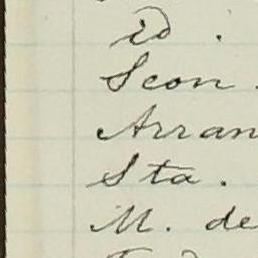 id.
Scon.
Arran
Sta.
M. de